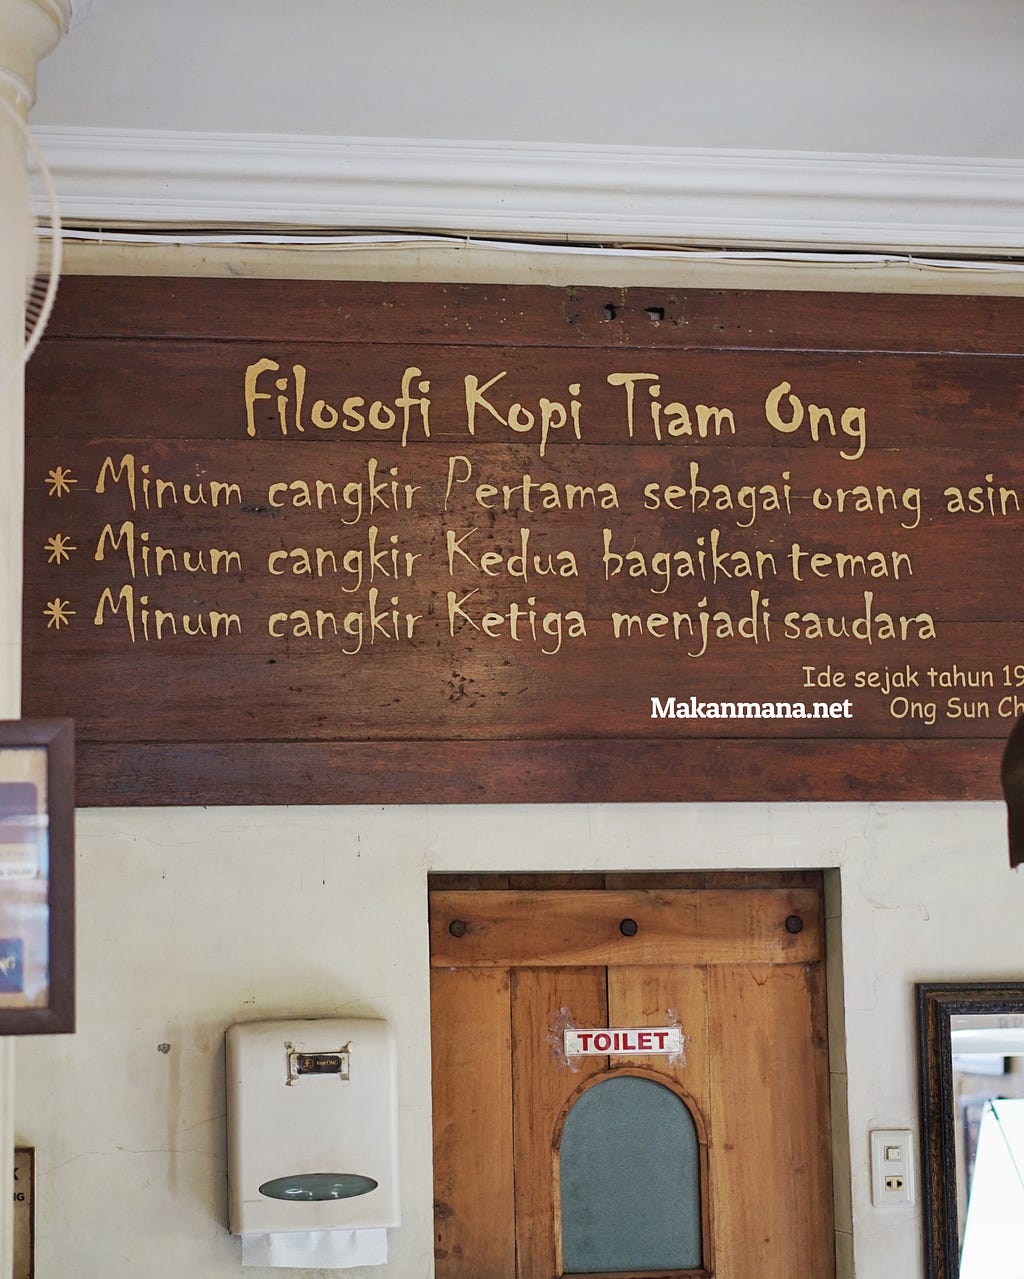 Filosofi Kopi Tiam Ong
* Minum cangkir Pertama sebagai orang asin
* Minum cangkir Kedua bagaikan teman
* Minum cangkir Ketiga menjadi saudara
Ide sejak tahun 19
Makanmana.net
Ong Sun Ch
TOILET